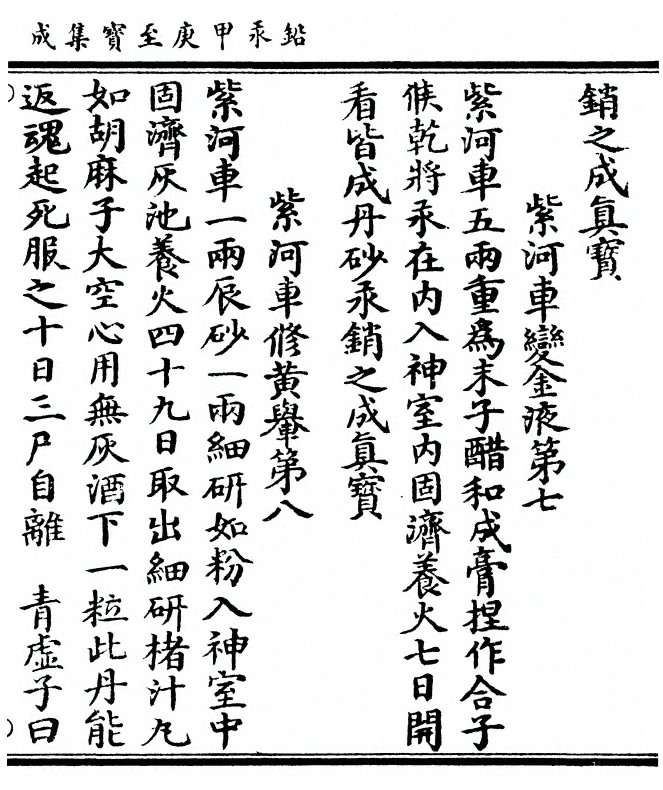 鉛汞甲庚至寶集成
銷之成真寶
紫河車變金液第七
紫河車五兩重為末子醋和成膏捏作合子
候乾將汞在内入神室内固濟養火七日開
看皆成丹砂汞銷之成真寶
紫河車修黄轝第八
紫河車一兩辰砂一兩細研如粉入神室中
固濟灰池養火四十九日取出細研楮汁丸
如胡麻子大空心用無灰酒下一粒此丹能
返魂起死服之十日三尸自離　青虚子曰